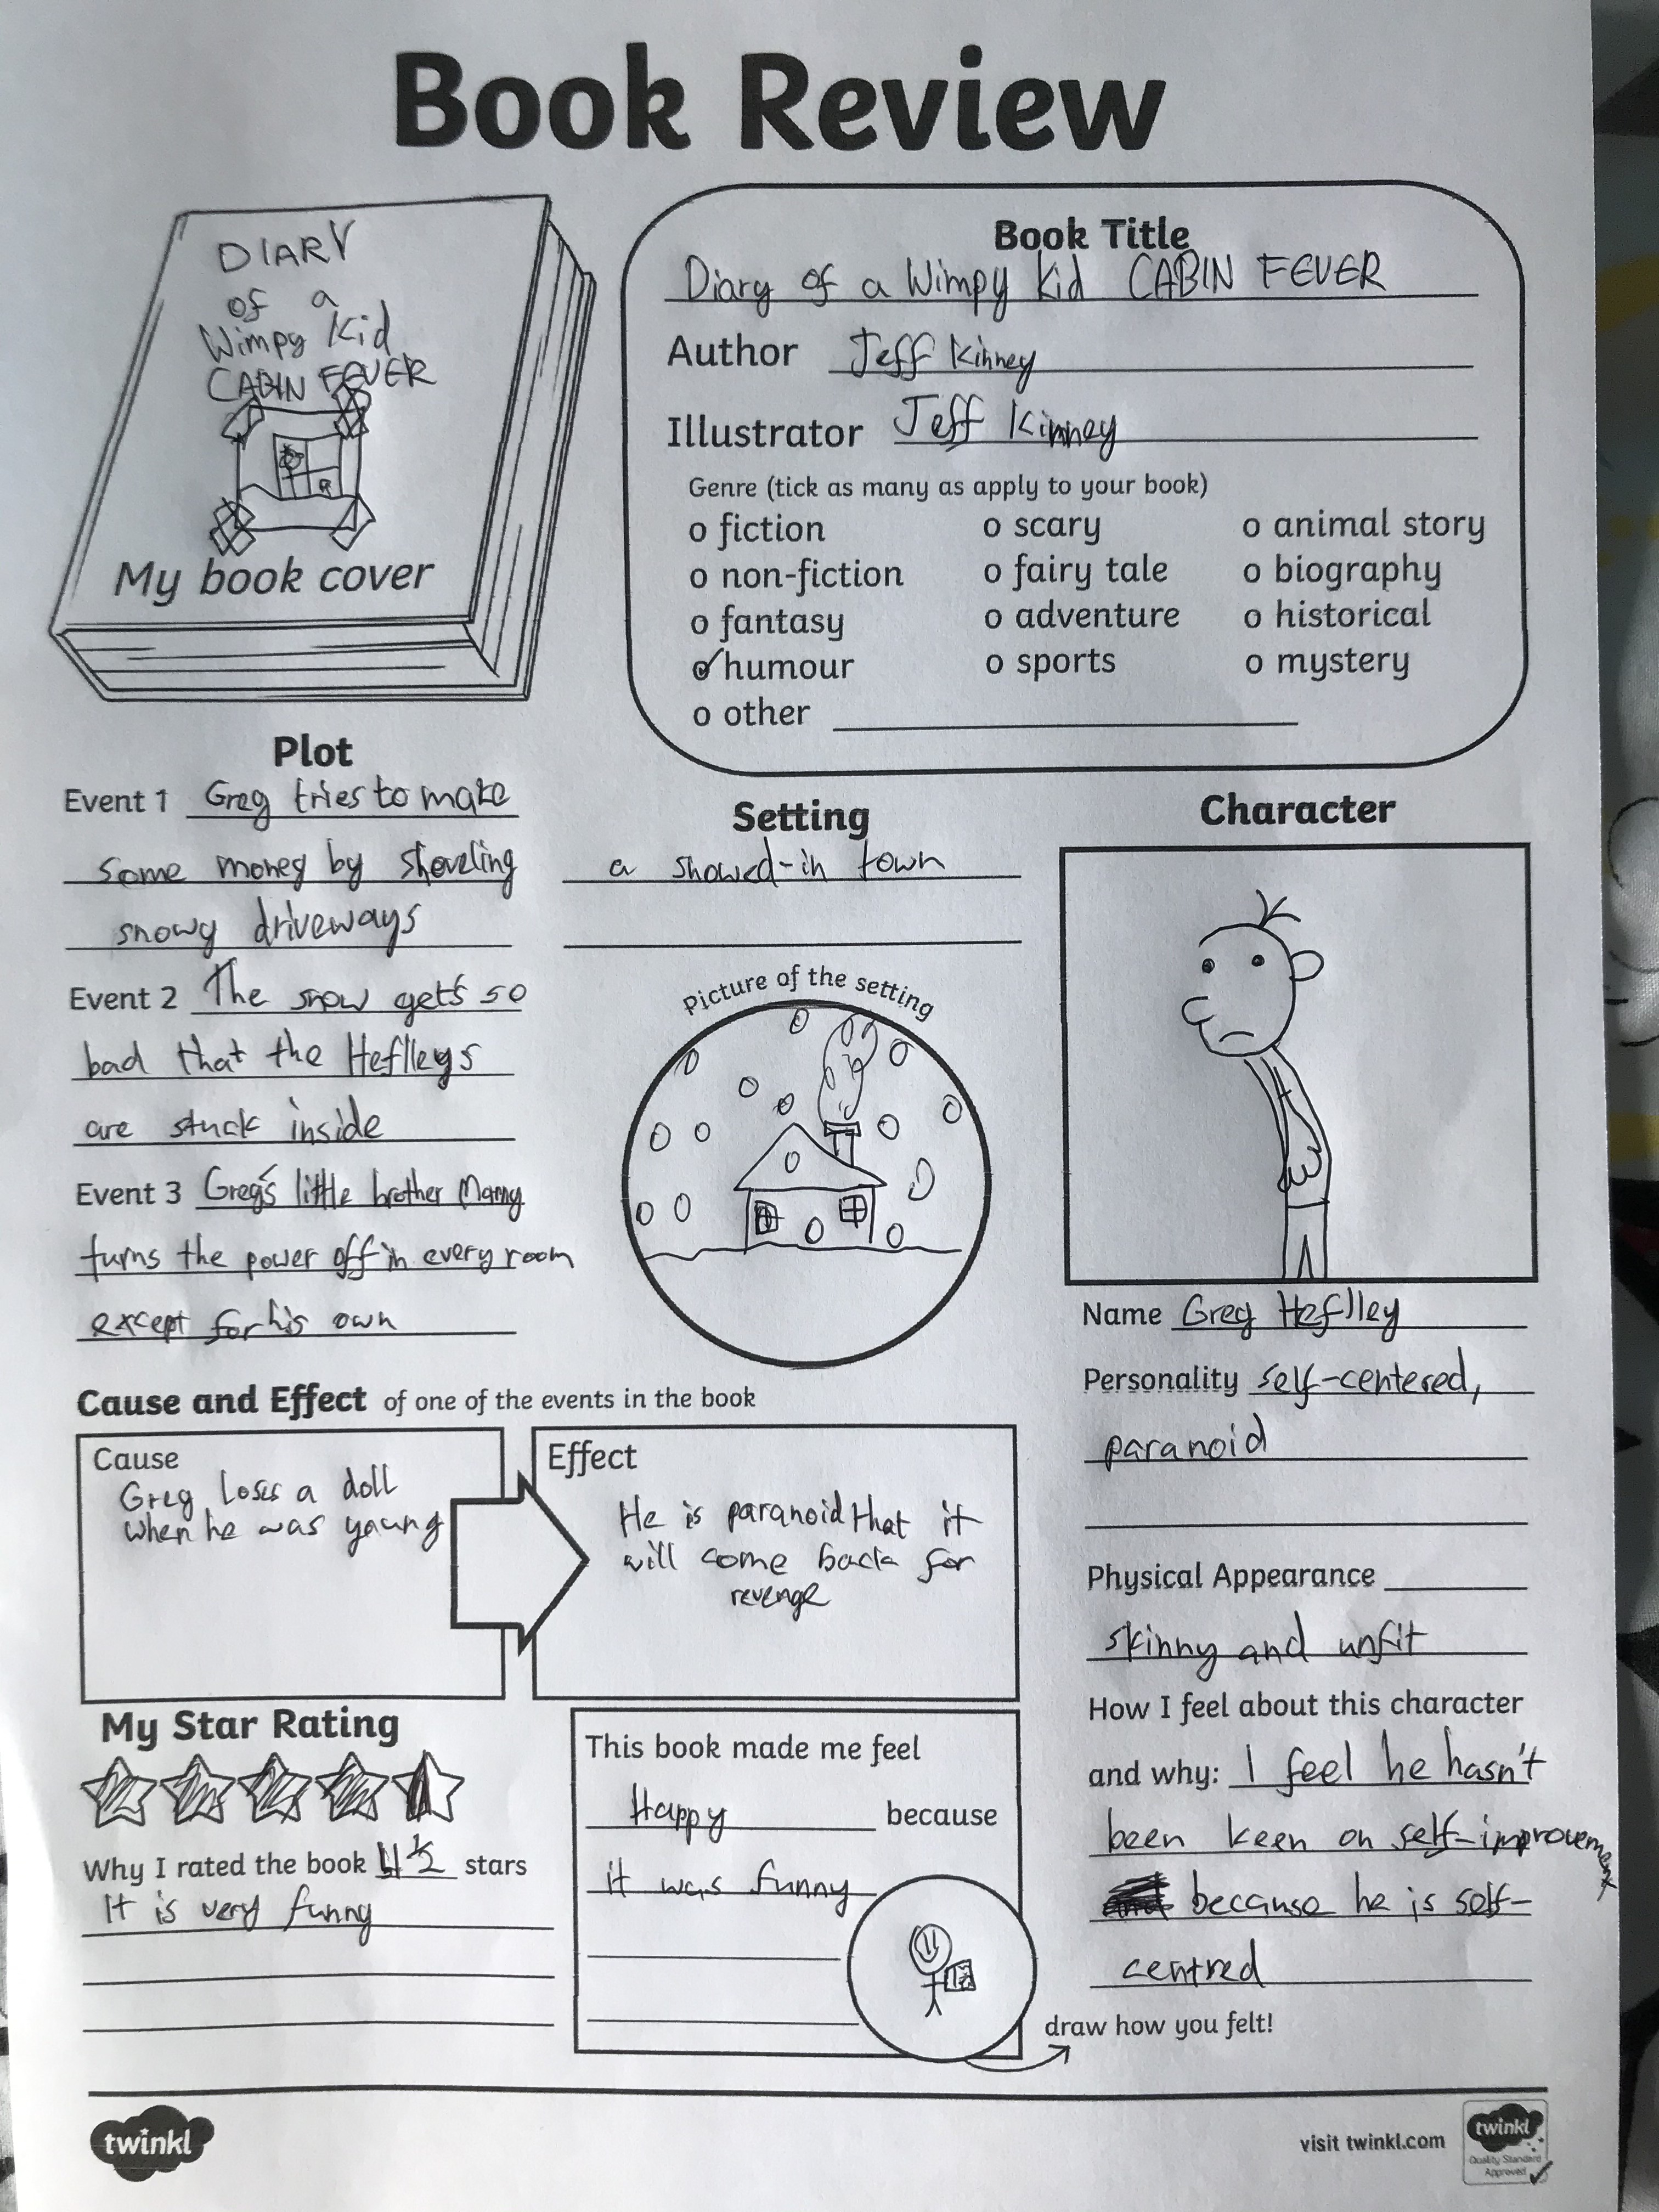 Book Review
DIARY
of a
Wimpy Kid
CABIN FEVER
My book cover
Book Title
Diary of a Wimpy Kid CABIN FEVER
Author Jeff Kinney
Illustrator Jeff Kinney
Genre (tick as many as apply to your book)
o fiction o scary o animal story
o non-fiction o fairy tale o biography
o fantasy o adventure o historical
o humour o sports o mystery
o other
Plot
Event 1 Greg tries to make
some money by shoveling
snowy driveways
Event 2 The snow gets so
bad that the Heflleys
are stuck inside
Event 3 Greg's little brother Manny
turns the power off in every room
except for his own
Setting
a snowed-in town
Picture of the setting
Character
Name Greg Heflley
Personality self-centered,
paranoid
Physical Appearance
skinny and unfit
How I feel about this character
and why: I feel he hasn't
been keen on self-improvement
because he is self-
centred
Cause and Effect of one of the events in the book
Cause
Greg loses a doll
when he was young
Effect
He is paranoid that it
will come back for
revenge
My Star Rating
Why I rated the book 4½ stars
It is very funny
This book made me feel
Happy because
it was funny
draw how you felt!
twinkl
visit twinkl.com
twinkl
Quality Standard
Approved